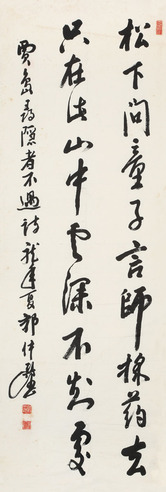 松下问童子言師採药去
只在此山中云深不知處
賈島尋隱者不遇詩龍年夏郭仲選